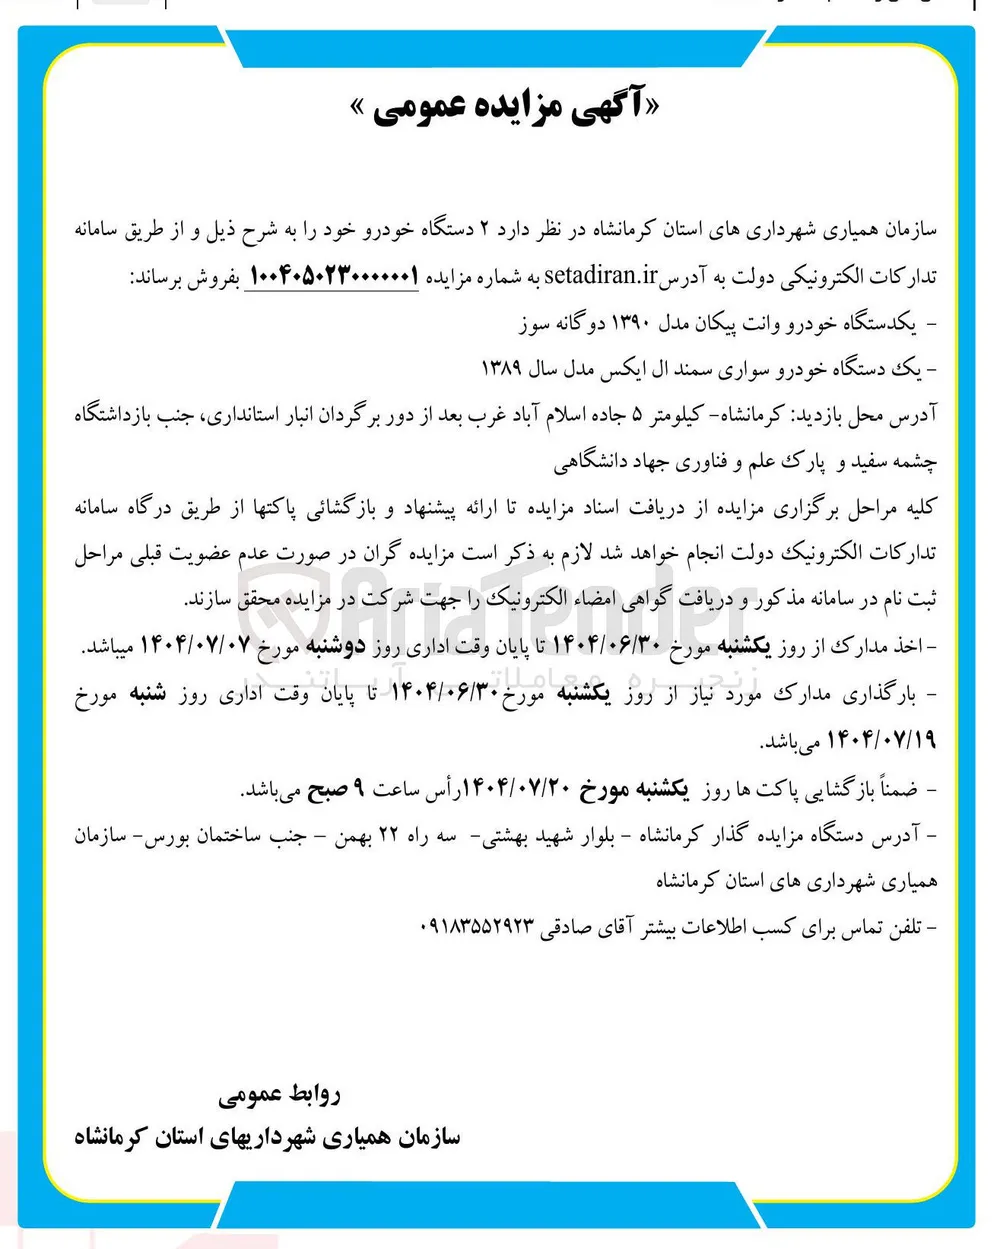 «آگهی مزایده عمومی »
سازمان همیاری شهرداری های استان کرمانشاه در نظر دارد ۲ دستگاه خودرو خود را به شرح ذیل و از طریق سامانه
تدارکات الکترونیکی دولت به آدرس setadiran.ir به شماره مزایده ۱۰۰۴۰۵۰۲۳۰۰۰۰۰۰۱ بفروش برساند:
- یکدستگاه خودرو وانت پیکان مدل ۱۳۹۰ دوگانه سوز
- یک دستگاه خودرو سواری سمند ال ایکس مدل سال ۱۳۸۹
آدرس محل بازدید: کرمانشاه- کیلومتر ۵ جاده اسلام آباد غرب بعد از دور برگردان انبار استانداری، جنب بازداشتگاه
چشمه سفید و پارک علم و فناوری جهاد دانشگاهی
کلیه مراحل برگزاری مزایده از دریافت اسناد مزایده تا ارائه پیشنهاد و بازگشائی پاکتها از طریق درگاه سامانه
تدارکات الکترونیک دولت انجام خواهد شد لازم به ذکر است مزایده گران در صورت عدم عضویت قبلی مراحل
ثبت نام در سامانه مذکور و دریافت گواهی امضاء الکترونیک را جهت شرکت در مزایده محقق سازند.
AriaTender
- اخذ مدارک از روز یکشنبه مورخ ۱۴۰۴/۰۶/۳۰ تا پایان وقت اداری روز دوشنبه مورخ ۱۴۰۴/۰۷/۰۷ میباشد.
زنجیره معاملاتی آریاتندر
- بارگذاری مدارک مورد نیاز از روز یکشنبه مورخ۱۴۰۴/۰۶/۳۰ تا پایان وقت اداری روز شنبه مورخ
۱۴۰۴/۰۷/۱۹ می‌باشد.
- ضمناً بازگشایی پاکت ها روز یکشنبه مورخ ۱۴۰۴/۰۷/۲۰رأس ساعت ۹ صبح می‌باشد.
- آدرس دستگاه مزایده گذار کرمانشاه - بلوار شهید بهشتی- سه راه ۲۲ بهمن – جنب ساختمان بورس- سازمان
همیاری شهرداری های استان کرمانشاه
- تلفن تماس برای کسب اطلاعات بیشتر آقای صادقی ۰۹۱۸۳۵۵۲۹۲۳
روابط عمومی
سازمان همیاری شهرداریهای استان کرمانشاه